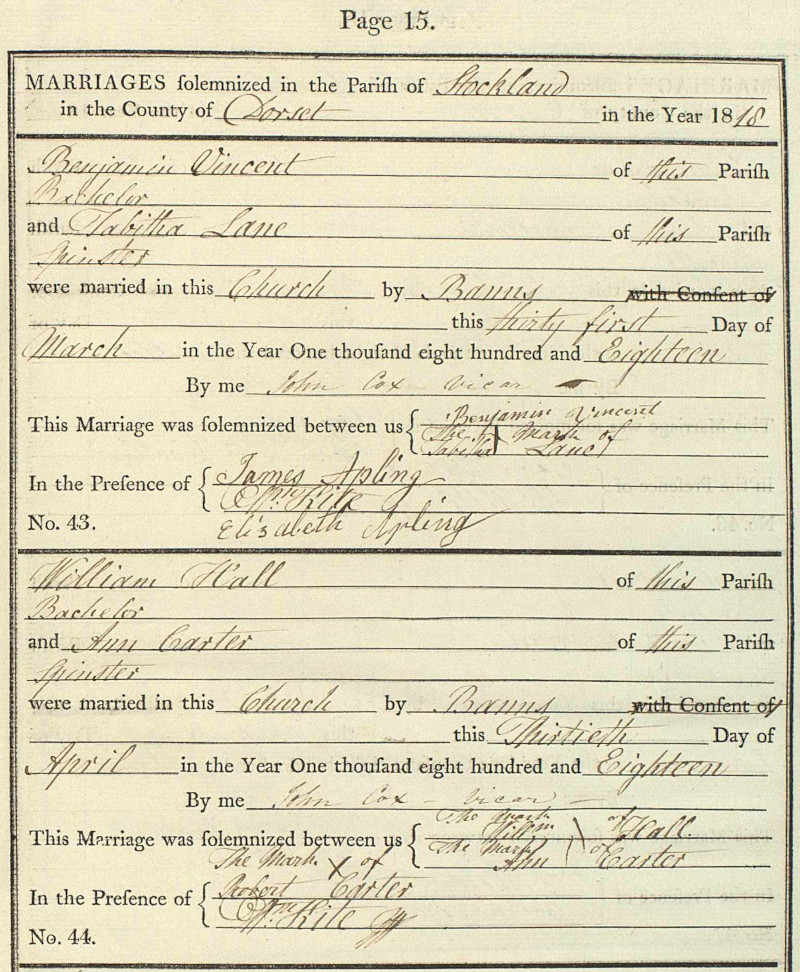 Page 15.
MARRIAGES ſolemnized in the Pariſh of Stockland
in the County of Dorset in the Year 1818
Benjamin Vincent of this Pariſh
Bachelor
and Tabitha Lane of this Pariſh
Spinster
were married in this Church by Banns with Conſent of
this thirty first Day of
March in the Year One thouſand eight hundred and Eighteen
By me John Cox - Vicar -
This Marriage was ſolemnized between us { Benjamin Vincent
The Mark of
Tabitha Lane
In the Preſence of { James Apling
Wm Kite
No. 43. Elizabeth Apling
William Hall of this Pariſh
Bachelor
and Ann Carter of this Pariſh
Spinster
were married in this Church by Banns with Conſent of
this Thirtieth Day of
April in the Year One thouſand eight hundred and Eighteen
By me John Cox - Vicar -
The Mark of
This Marriage was ſolemnized between us { Willm Hall.
The Mark of
Ann Carter
The Mark X of
In the Preſence of { Robert Carter
Wm Kite
No. 44.